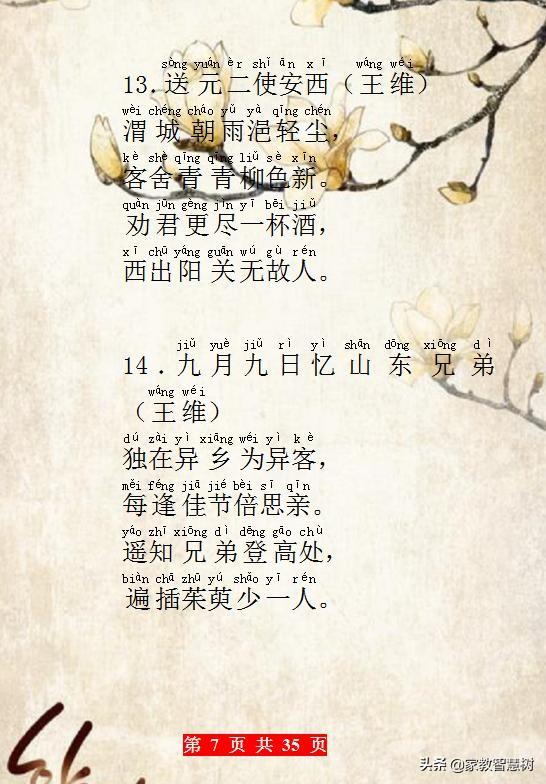 sòng yuán èr shǐ ān xī wáng wéi
13.送元二使安西（王维）
wèi chéng zhāo yǔ yì qīng chén
渭城朝雨浥轻尘，
kè shè qīng qīng liǔ sè xīn
客舍青青柳色新。
quàn jūn gèng jìn yī bēi jiǔ
劝君更尽一杯酒，
xī chū yáng guān wú gù rén
西出阳关无故人。
jiǔ yuè jiǔ rì yì shān dōng xiōng dì
14.九月九日忆山东兄弟
wáng wéi
（王维）
dú zài yì xiāng wéi yì kè
独在异乡为异客，
měi féng jiā jié bèi sī qīn
每逢佳节倍思亲。
yáo zhī xiōng dì dēng gāo chù
遥知兄弟登高处，
biàn chā zhū yú shǎo yī rén
遍插茱萸少一人。
第 7 页 共 35 页
头条 @家教智慧树